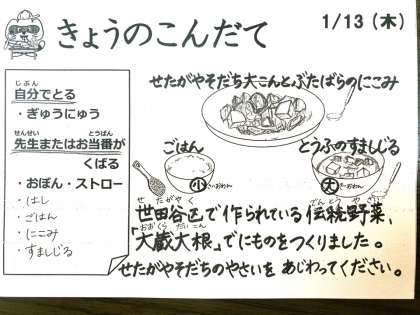 きょうのこんだて
1/13（木）
じぶん
自分でとる
・ぎゅうにゅう
せんせい とうばん
先生またはお当番が
くばる
・おぼん・ストロー
・はし
・ごはん
・にこみ
・すましじる
せたがやそだち大こんとぶたばらのにこみ
ごはん
小
とうふのすましじる
大
せたがやく でんとうやさい
世田谷区で作られている伝統野菜、
おおくらだいこん
「大蔵大根」でにものをつくりました。
せたがやそだちのやさいを あじわってください。